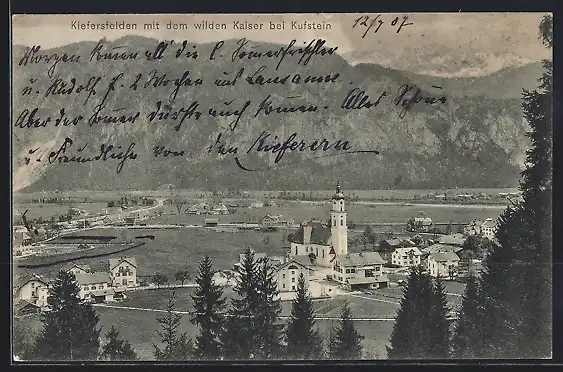 Kiefersfelden mit dem wilden Kaiser bei Kufstein
12/7 07
Morgen kommen all' die l. Sommerfrischler
u. Rudolf f. 2 Wochen aus Lausanne
Aber der Sommer dürfte auch kommen. Alles Schöne
u. Freundliche von den Kieferern